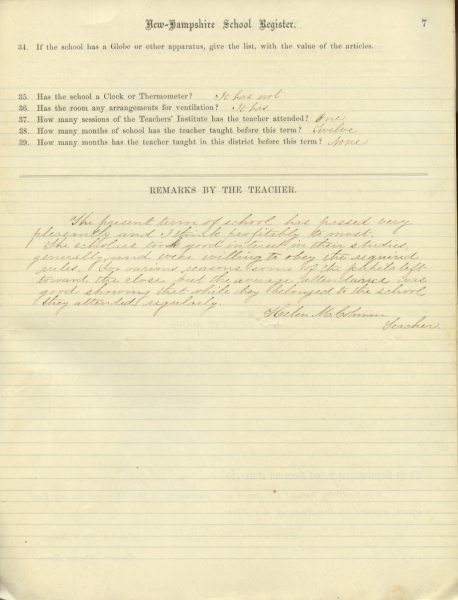 New-Hampshire School Register.
7
34. If the school has a Globe or other apparatus, give the list, with the value of the articles.
35. Has the school a Clock or Thermometer? It has not
36. Has the room any arrangements for ventilation? It has
37. How many sessions of the Teachers' Institute has the teacher attended? One
38. How many months of school has the teacher taught before this term? Twelve
39. How many months has the teacher taught in this district before this term? None
REMARKS BY THE TEACHER.
The present term of school has passed very
pleasantly and I think profitably to most.
The scholars took good interest in their studies,
generally, and were willing to obey the required
rules. For various reasons some of the pupils left
toward the close but the average attendance was
good showing that while they belonged to the school
they attended regularly.
Helen M.
Teacher